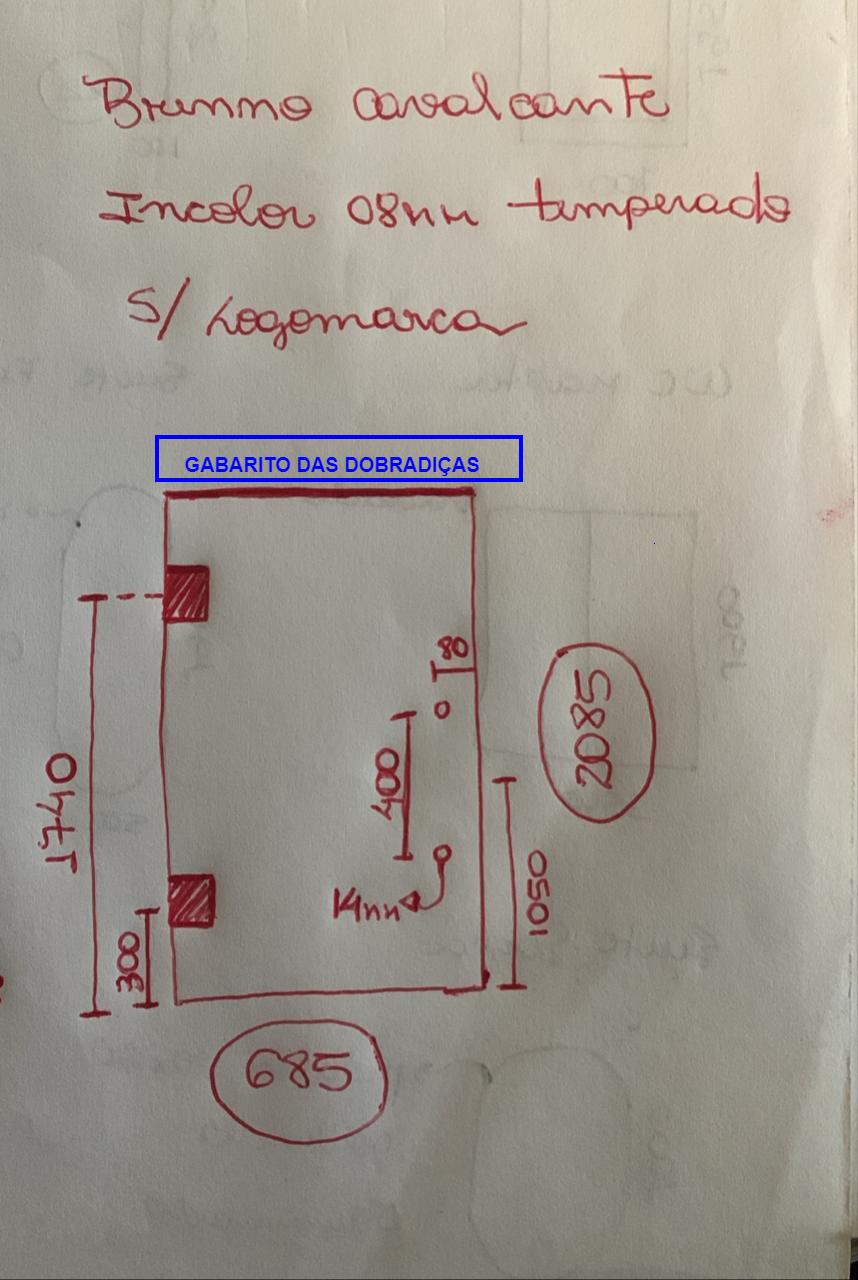 Brunno cavalcante
Incolor 08mm temperado
S/ Logomarca
GABARITO DAS DOBRADIÇAS
80
2085
400
1740
1050
14mm
300
685